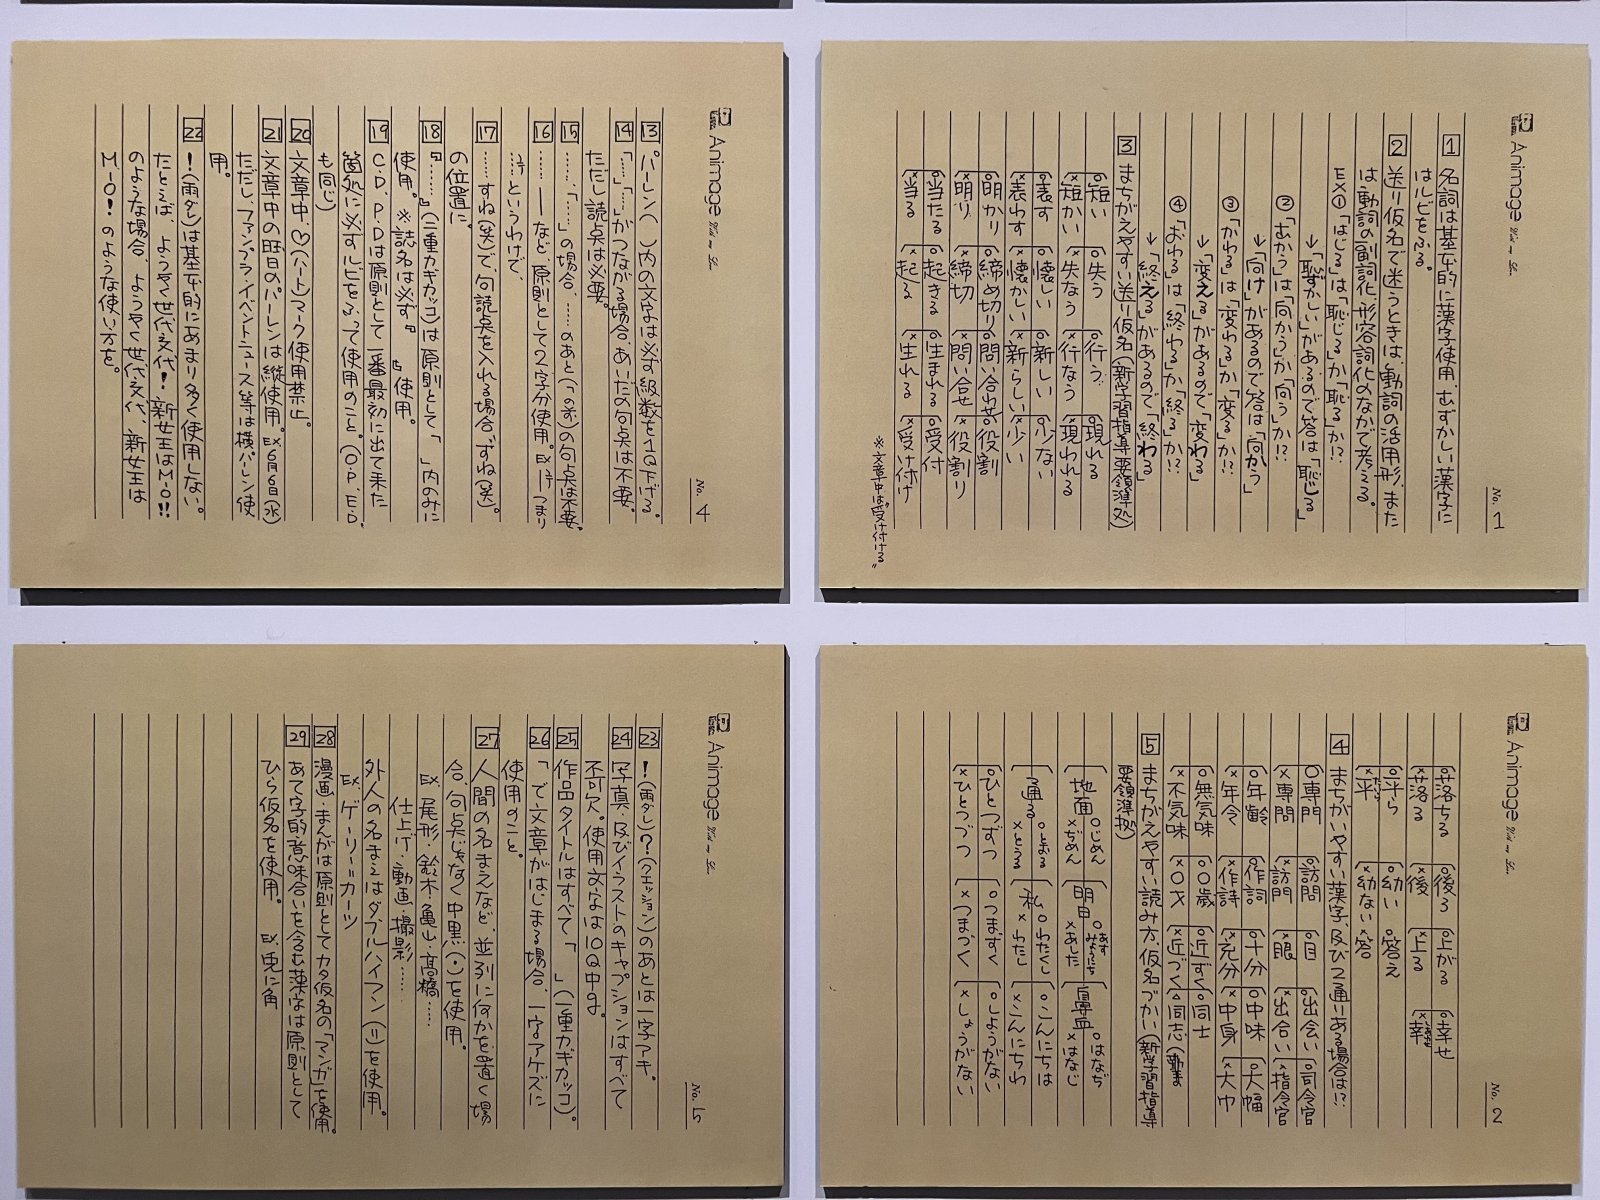 Animage
No. 1
1 名詞は基本的に漢字使用、むずかしい漢字に
はルビをふる。
2 送り仮名で迷うときは、動詞の活用形、また
は動詞の副詞化、形容詞化のなかで考える。
EX① 「はじる」は「恥じる」か「恥る」か!?
→「恥ずかしい」があるので答は「恥じる」
② 「むかう」は「向かう」か「向う」か!?
→「向け」があるので答は「向かう」
③ 「かわる」は「変わる」か「変る」か!?
→「変える」があるので「変わる」
④ 「おわる」は「終わる」か「終る」か!?
→「終える」があるので「終わる」
3 まちがえやすい送り仮名(新学習指導要領準処)
○短い ○失う ○行う ○現れる
×短かい ×失なう ×行なう ×現われる
○表す ○懐しい ○新しい ○少ない
×表わす ×懐かしい ×新らしい ×少い
○明かり ○締め切り ○問い合わせ ○役割
×明り ×締切 ×問い合せ ×役割り
○当たる ○起きる ○生まれる ○受付
×当る ×起る ×生れる ×受け付け
※文章中は"受け付ける"
Animage
No. 2
○落ちる ○後ろ ○上がる ○幸せ
×落る ×後 ×上る ×幸
○平ら ○幼い ○答え
×平 ×幼ない ×答
4 まちがいやすい漢字、及び2通りある場合は!?
○専門 ○訪問 ○目 ○出会い ○司令官
×専問 ×訪門 ×眼 ×出合い ×指令官
○年齢 ○作詞 ○十分 ○中味 ○大幅
×年令 ×作詩 ×充分 ×中身 ×大巾
○無気味 ○○歳 ○近ずく ○同士
×不気味 ×○才 ×近づく ×同志
5 まちがえやすい読み方、仮名づかい(新学習指導
要領準拠)
地面 ○じめん ×ぢめん 明日 ○あす みょうにち ×あした 鼻血 ○はなぢ ×はなじ
通る ○とおる ×とうる 私 ○わたくし ×わたし ○こんにちは ×こんにちわ
○ひとつずつ ○つまずく ○しようがない
×ひとつづつ ×つまづく ×しょうがない
Animage
No. 4
13 パーレン( )内の文字は必ず級数を1Q下げる。
14 「……」「……」がつながる場合、あいだの句点は不要。
ただし読点は必要。
15 ……、「……」の場合、……のあと(、の所)の句点は不要。
16 …… ── など、原則として2字分使用。EX ── つまり
…… というわけで、
17 ……すね(笑)で、句読点を入れる場合、ずね(笑)。
の位置に。
18 『……』(二重カギカッコ)は原則として「 」内のみに
使用。 ※誌名は必ず『 』使用。
19 C.D, P.Dは原則として一番最初に出て来た
箇処に必ずルビをふって使用のこと。(O.P, E.D.
も同じ)
20 文章中、♡(ハート)マーク使用禁止。
21 文章中の曜日のパーレンは縦使用。EX 6月6日(水)
ただし、ファンプラ・イベントニュース等は横パーレン使
用。
22 !(雨ダレ)は基本的にあまり多く使用しない。
たとえば、ようやく世代交代!新女王はM-O!!
のような場合、ようやく世代交代、新女王は
M-O! のような使い方を。
Animage
No. 5
23 !(雨ダレ)?(クエッション)のあとは一字アキ。
24 写真、及びイラストのキャプションはすべて
不可欠。使用文字は10Q中g。
25 作品タイトルはすべて「 」(一重カギカッコ)。
26 「で文章がはじまる場合、一字アケズに
使用のこと。
27 人間の名まえなど、並列に何かを置く場
合、句点じゃなく中黒(・)を使用。
EX. 尾形・鈴木・亀山・高橋……
仕上げ・動画・撮影……
外人の名まえはダブルハイフン(=)を使用。
EX. ゲーリー=カーツ
28 漫画・まんがは原則としてカタ仮名の「マンガ」を使用。
29 あて字的意味合いを含む漢字は原則として
ひら仮名を使用。 EX. 兎に角